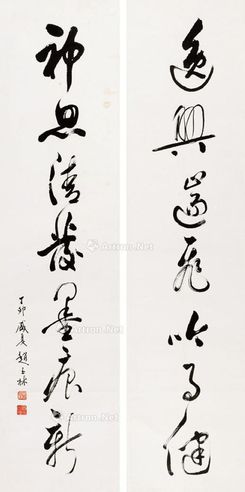 逸興遄飛吟事健
神思清發墨痕新
丁卯盛夏趙玉林
Artron.Net
Artron.Net